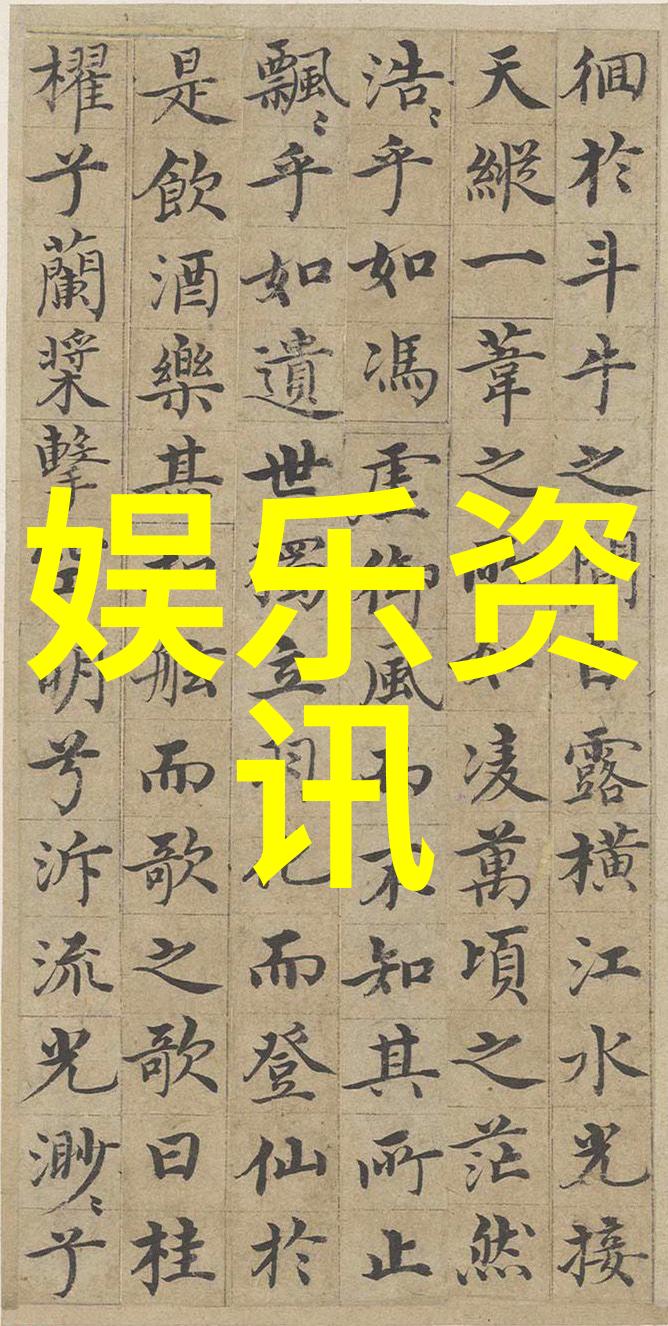 徊於斗牛之間白露橫江水光接
天縱一葦之所如凌萬頃之茫然
浩〻乎如馮虛御風而不知其所止
飄〻乎如遺世獨立羽化而登仙於
是飲酒樂甚扣舷而歌之歌曰桂
櫂兮蘭槳擊空明兮泝流光渺〻兮
娱乐资
讯